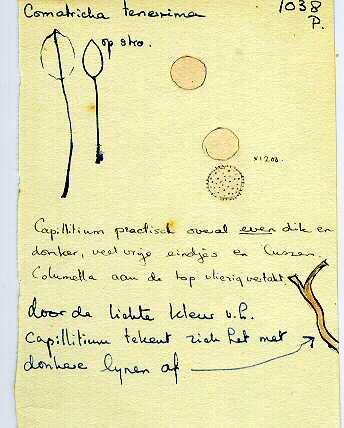 Comatricha tenerrima
1038
P.
op stro.
x1200.
Capillitium practisch overal even dik en
donker, veel vrije eindjes en lussen.
Columella aan de top vliezig vertakt
door de lichte kleur v.h.
capillitium tekent zich het met
donkere lijnen af